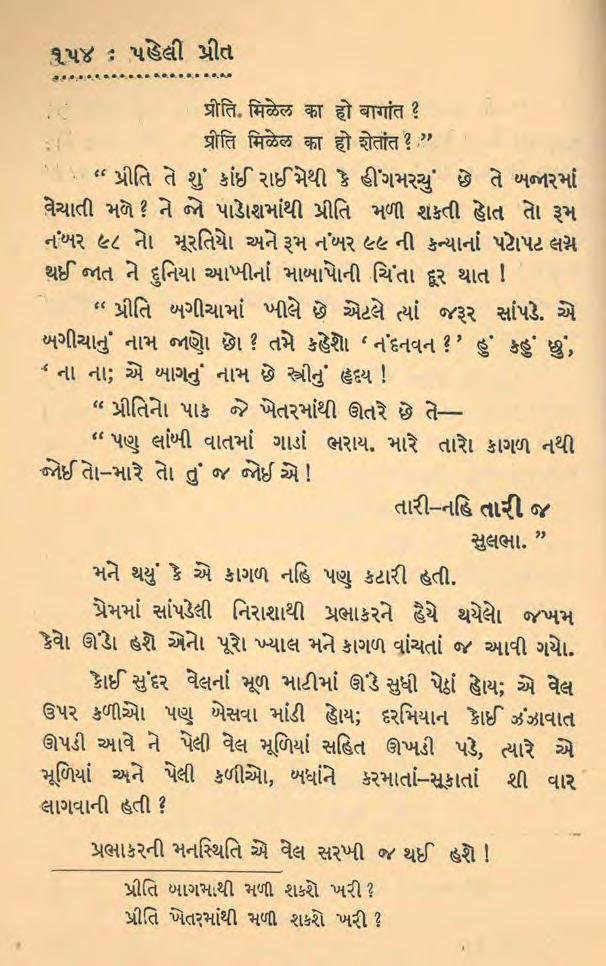 ૧૫૪ : પહેલી પ્રીત
પ્રીતિ. મિળેલ કા હો બાગાંત ?
પ્રીતિ મિળેલ કા હો શેતાંત ? ”
“ પ્રીતિ તે શું કાંઈ રાઈમેથી કે હીંગમરચું છે તે બજારમાં
વેચાતી મળે ? ને જો પાડોશમાંથી પ્રીતિ મળી શકતી હોત તો રૂમ
નંબર ૯૮ નો મૂરતિયો અને રૂમ નંબર ૯૯ ની કન્યાનાં પટોપટ લગ્ન
થઈ જાત ને દુનિયા આખીનાં માબાપોની ચિંતા દૂર થાત !
“ પ્રીતિ બગીચામાં ખીલે છે એટલે ત્યાં જરૂર સાંપડે. એ
બગીચાનું નામ જાણો છો ? તમે કહેશો ‘ નંદનવન ? ’ હું કહું છું,
‘ ના ના; એ બાગનું નામ છે સ્ત્રીનું હૃદય !
“ પ્રીતિનો પાક જે ખેતરમાંથી ઊતરે છે તે—
“ પણ લાંબી વાતમાં ગાડાં ભરાય. મારે તારો કાગળ નથી
જોઈતો–મારે તો તું જ જોઈએ !
તારી–નહિ તારી જ
સુલભા. ”
મને થયું કે એ કાગળ નહિ પણ કટારી હતી.
પ્રેમમાં સાંપડેલી નિરાશાથી પ્રભાકરને હૈયે થયેલો જખમ
કેવો ઊંડો હશે એનો પૂરો ખ્યાલ મને કાગળ વાંચતાં જ આવી ગયો.
કોઈ સુંદર વેલનાં મૂળ માટીમાં ઊંડે સુધી પેઠાં હોય; એ વેલ
ઉપર કળીઓ પણ બેસવા માંડી હોય; દરમિયાન કોઈ ઝંઝાવાત
ઊપડી આવે ને પેલી વેલ મૂળિયાં સહિત ઊખડી પડે, ત્યારે એ
મૂળિયાં અને પેલી કળીઓ, બધાંને કરમાતાં–સૂકાતાં શી વાર
લાગવાની હતી ?
પ્રભાકરની મનસ્થિતિ એ વેલ સરખી જ થઈ હશે !
પ્રીતિ બાગમાથી મળી શકશે ખરી ?
પ્રીતિ ખેતરમાંથી મળી શકશે ખરી ?